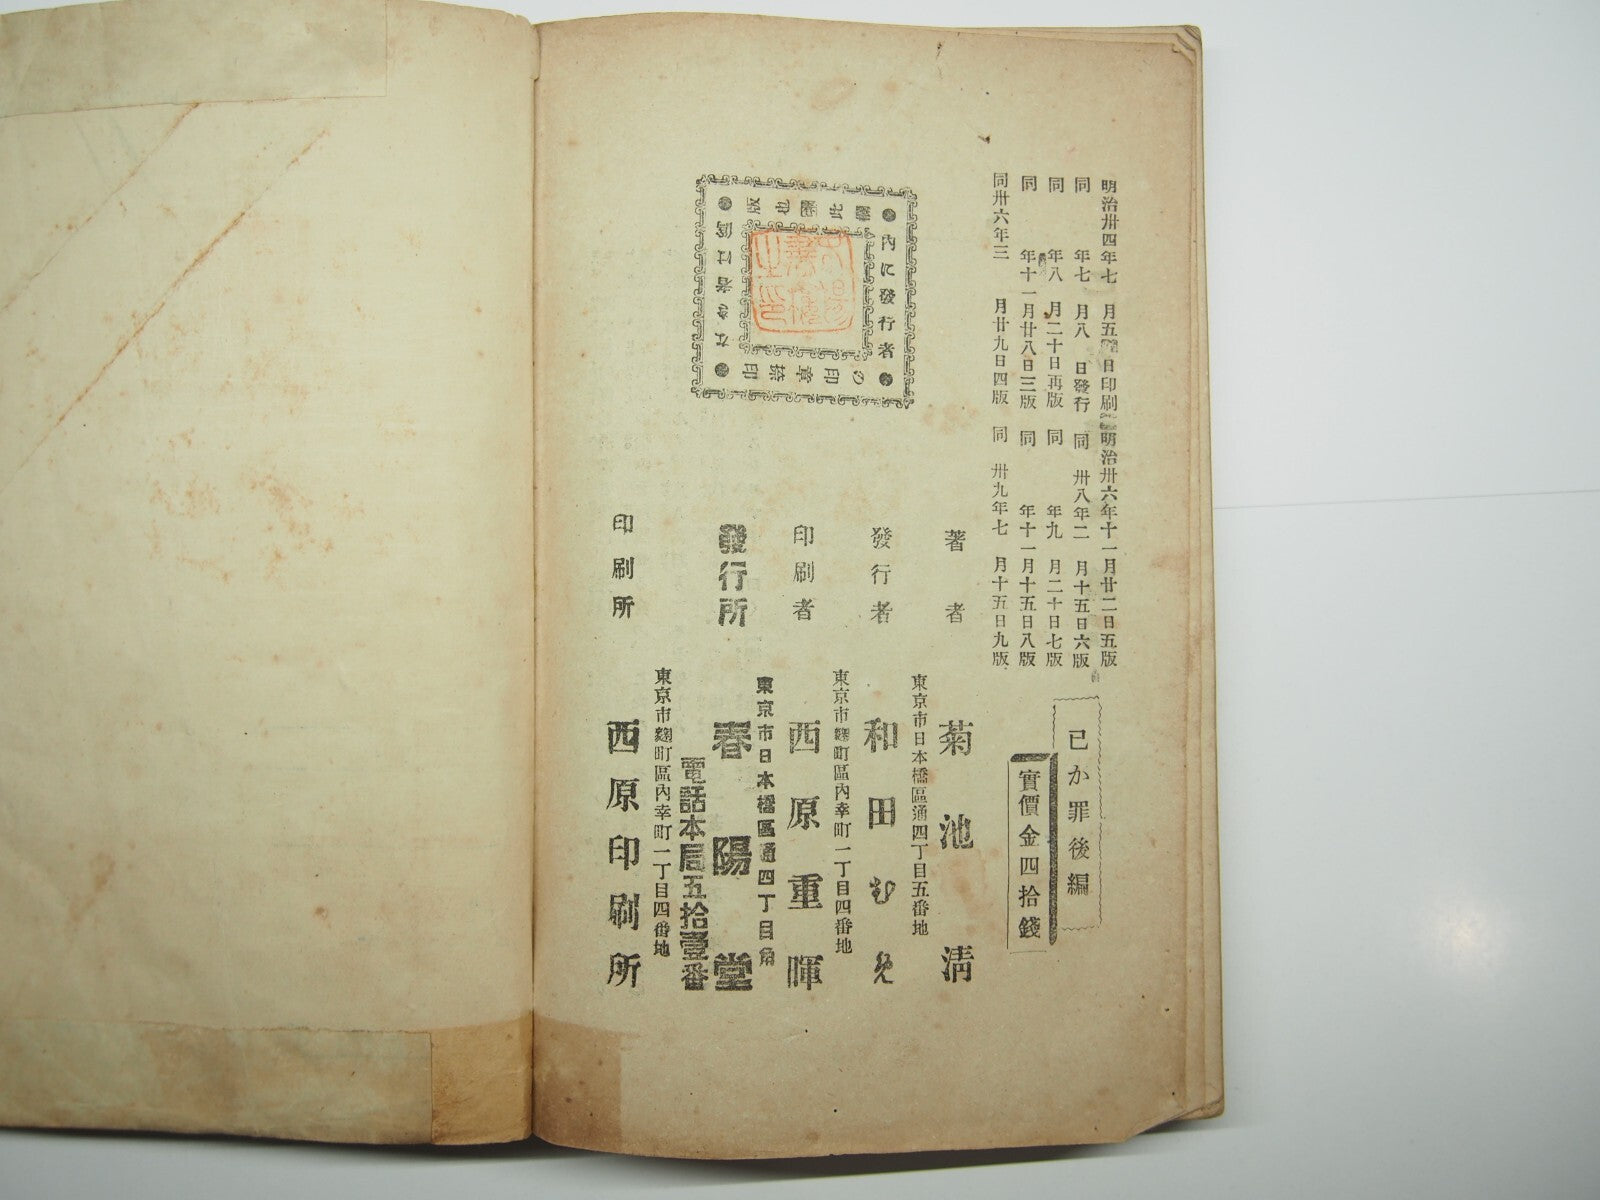 明治卅四年七月五日印刷
同年七月八日發行
同年八月二十日再版
同年十一月廿八日三版
同卅六年三月廿九日四版
明治卅六年十一月廿二日五版
同卅八年二月十五日六版
同年九月二十日七版
同年十一月十五日八版
同卅九年七月十五日九版
己か罪後編
實價金四拾錢
●內に發行者●
の印章捺印
●なき者は僞●
著者
菊池清
東京市日本橋區通四丁目五番地
發行者
和田むめ
東京市麴町區內幸町一丁目四番地
印刷者
西原重暉
東京市日本橋區通四丁目角
發行所
春陽堂
電話本局五拾壹番
東京市麴町區內幸町一丁目四番地
印刷所
西原印刷所